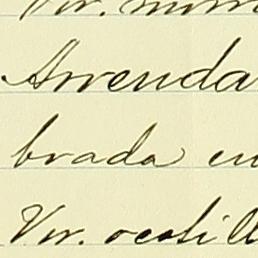 Arrenda
brada en
Vr. ocotill